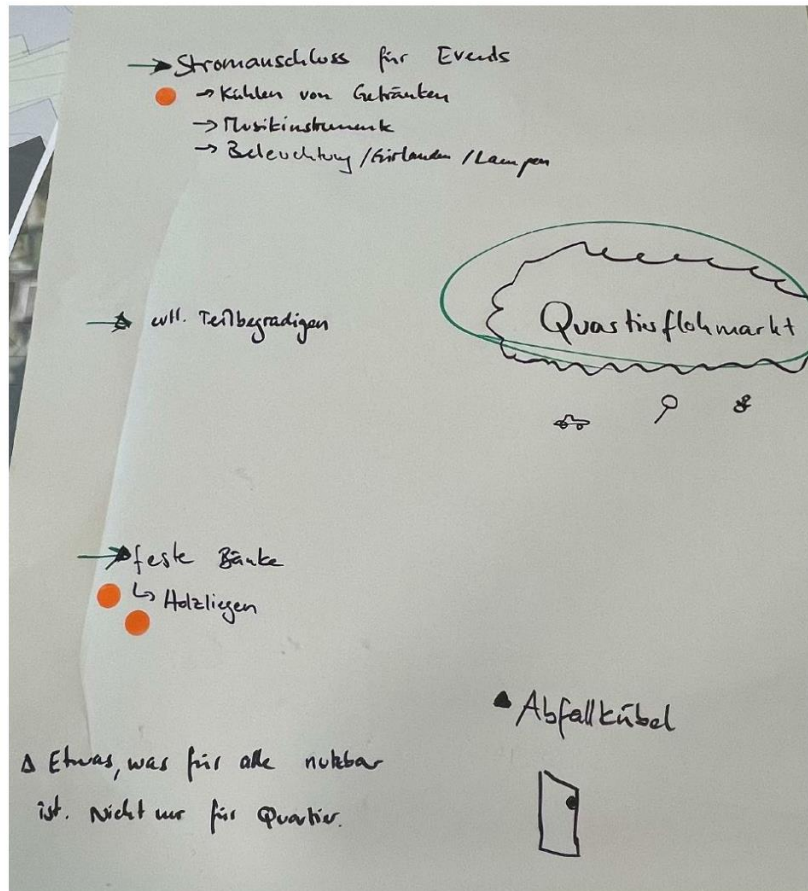 → Stromanschluss für Events
→ Kühlen von Getränken
→ Musikinstrumente
→ Beleuchtung / Girlanden / Lampen
→ evtl. Teilbegradigen
Quartiersflohmarkt
→ feste Bänke
↳ Holzliegen
Abfallkübel
Δ Etwas, was für alle nutzbar
ist. Nicht nur für Quartier.